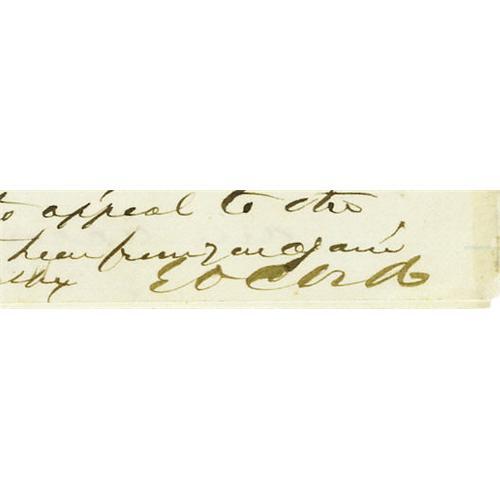 to appeal to the
hear from you again
E O C Ord